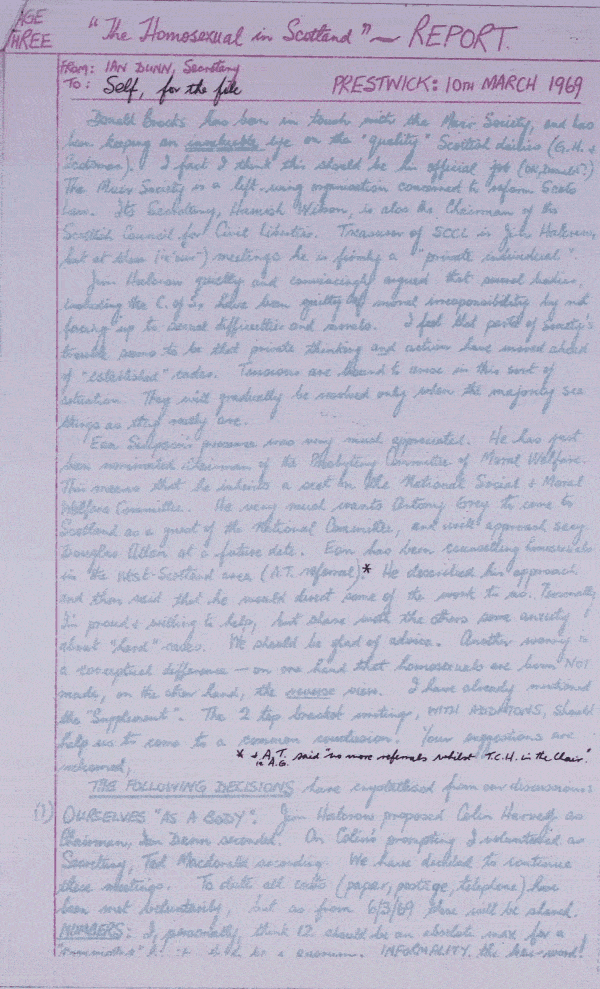 AGE THREE
"The Homosexual in Scotland" ~ REPORT.
FROM: IAN DUNN, Secretary
TO: Self, for the file
PRESTWICK: 10TH MARCH 1969
Donald Brooks has been in touch with the Muir Society, and has
been keeping an invaluable eye on the "quality" Scottish dailies (G.H. +
Scotsman). I fact I think this should be his official job (OK, Donald?)
The Muir Society is a left-wing organisation concerned to reform Scots
Law. Its Secretary, Hamish Wilson, is also the Chairman of the
Scottish Council for Civil Liberties. Treasurer of SCCL is Jim Halcrow,
but at these meetings he is firmly a "private individual".
Jim Halcrow quietly and convincingly argued that several bodies,
including the C. of S., have been guilty of moral irresponsibility by not
facing up to sexual difficulties and morals. I feel that part of society's
trouble seems to be that private thinking and action have moved ahead
of "established" codes. Tensions are bound to arise in this sort of
situation. They will gradually be resolved only when the majority see
things as they really are.
Ean Simpson's presence was very much appreciated. He has just
been nominated Chairman of the Presbytery Committee of Moral Welfare.
This means that he inherits a seat on the National Social + Moral
Welfare Committee. He very much wants Antony Grey to come to
Scotland as a guest of the National Committee, and will approach secy
Douglas Allen at a future date. Ean has been counselling homosexuals
in the West-Scotland area (A.T. referral).* He described his approach
and then said that he would direct some of the work to us. Personally
I'm proud + willing to help, but share with the others some anxiety
about "hard" cases. We should be glad of advice. Another worry is
a conceptual difference — on one hand that homosexuals are born NOT
made, on the other hand, the reverse view. I have already mentioned
the "Supplement". The 2 top bracket writings, WITH ADDITIONS, should
help us to come to a common conclusion. Your suggestions are
welcomed,
* + A.T. said "no more referrals whilst T.C.H. in the Chair."
in A.G.
THE FOLLOWING DECISIONS have crystallised from our discussions:
(1) OURSELVES "AS A BODY". Jim Halcrow proposed Colin Harvey as
Chairman, Ian Dunn seconded. On Colin's prompting I volunteered as
Secretary, Ted Macdonald seconding. We have decided to continue
these meetings. To date all costs (paper, postage, telephone) have
been met voluntarily, but as from 6/3/69 these will be shared.
NUMBERS: I, personally, think 12 should be an absolute max for a
"committee" be a quorum. INFORMALITY the key-word!